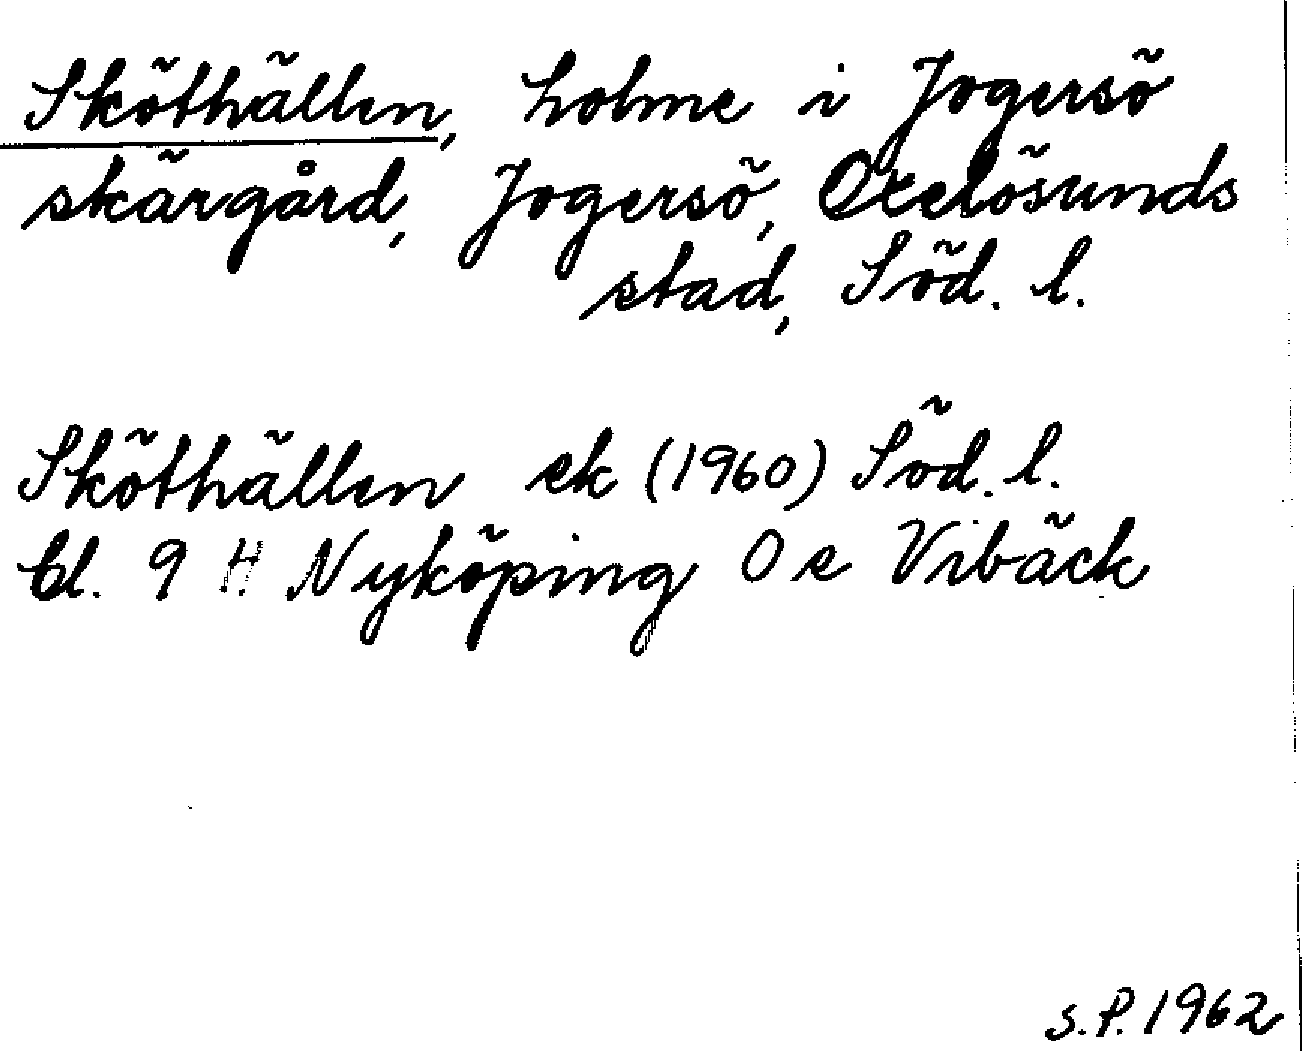 Sköthällen, holme i Jogersö
skärgård, Jogersö, Oxelösunds
stad, Söd. l.
Sköthällen ek (1960) Söd. l.
bl. 9 H Nyköping O e Vibäck
s. P. 1962